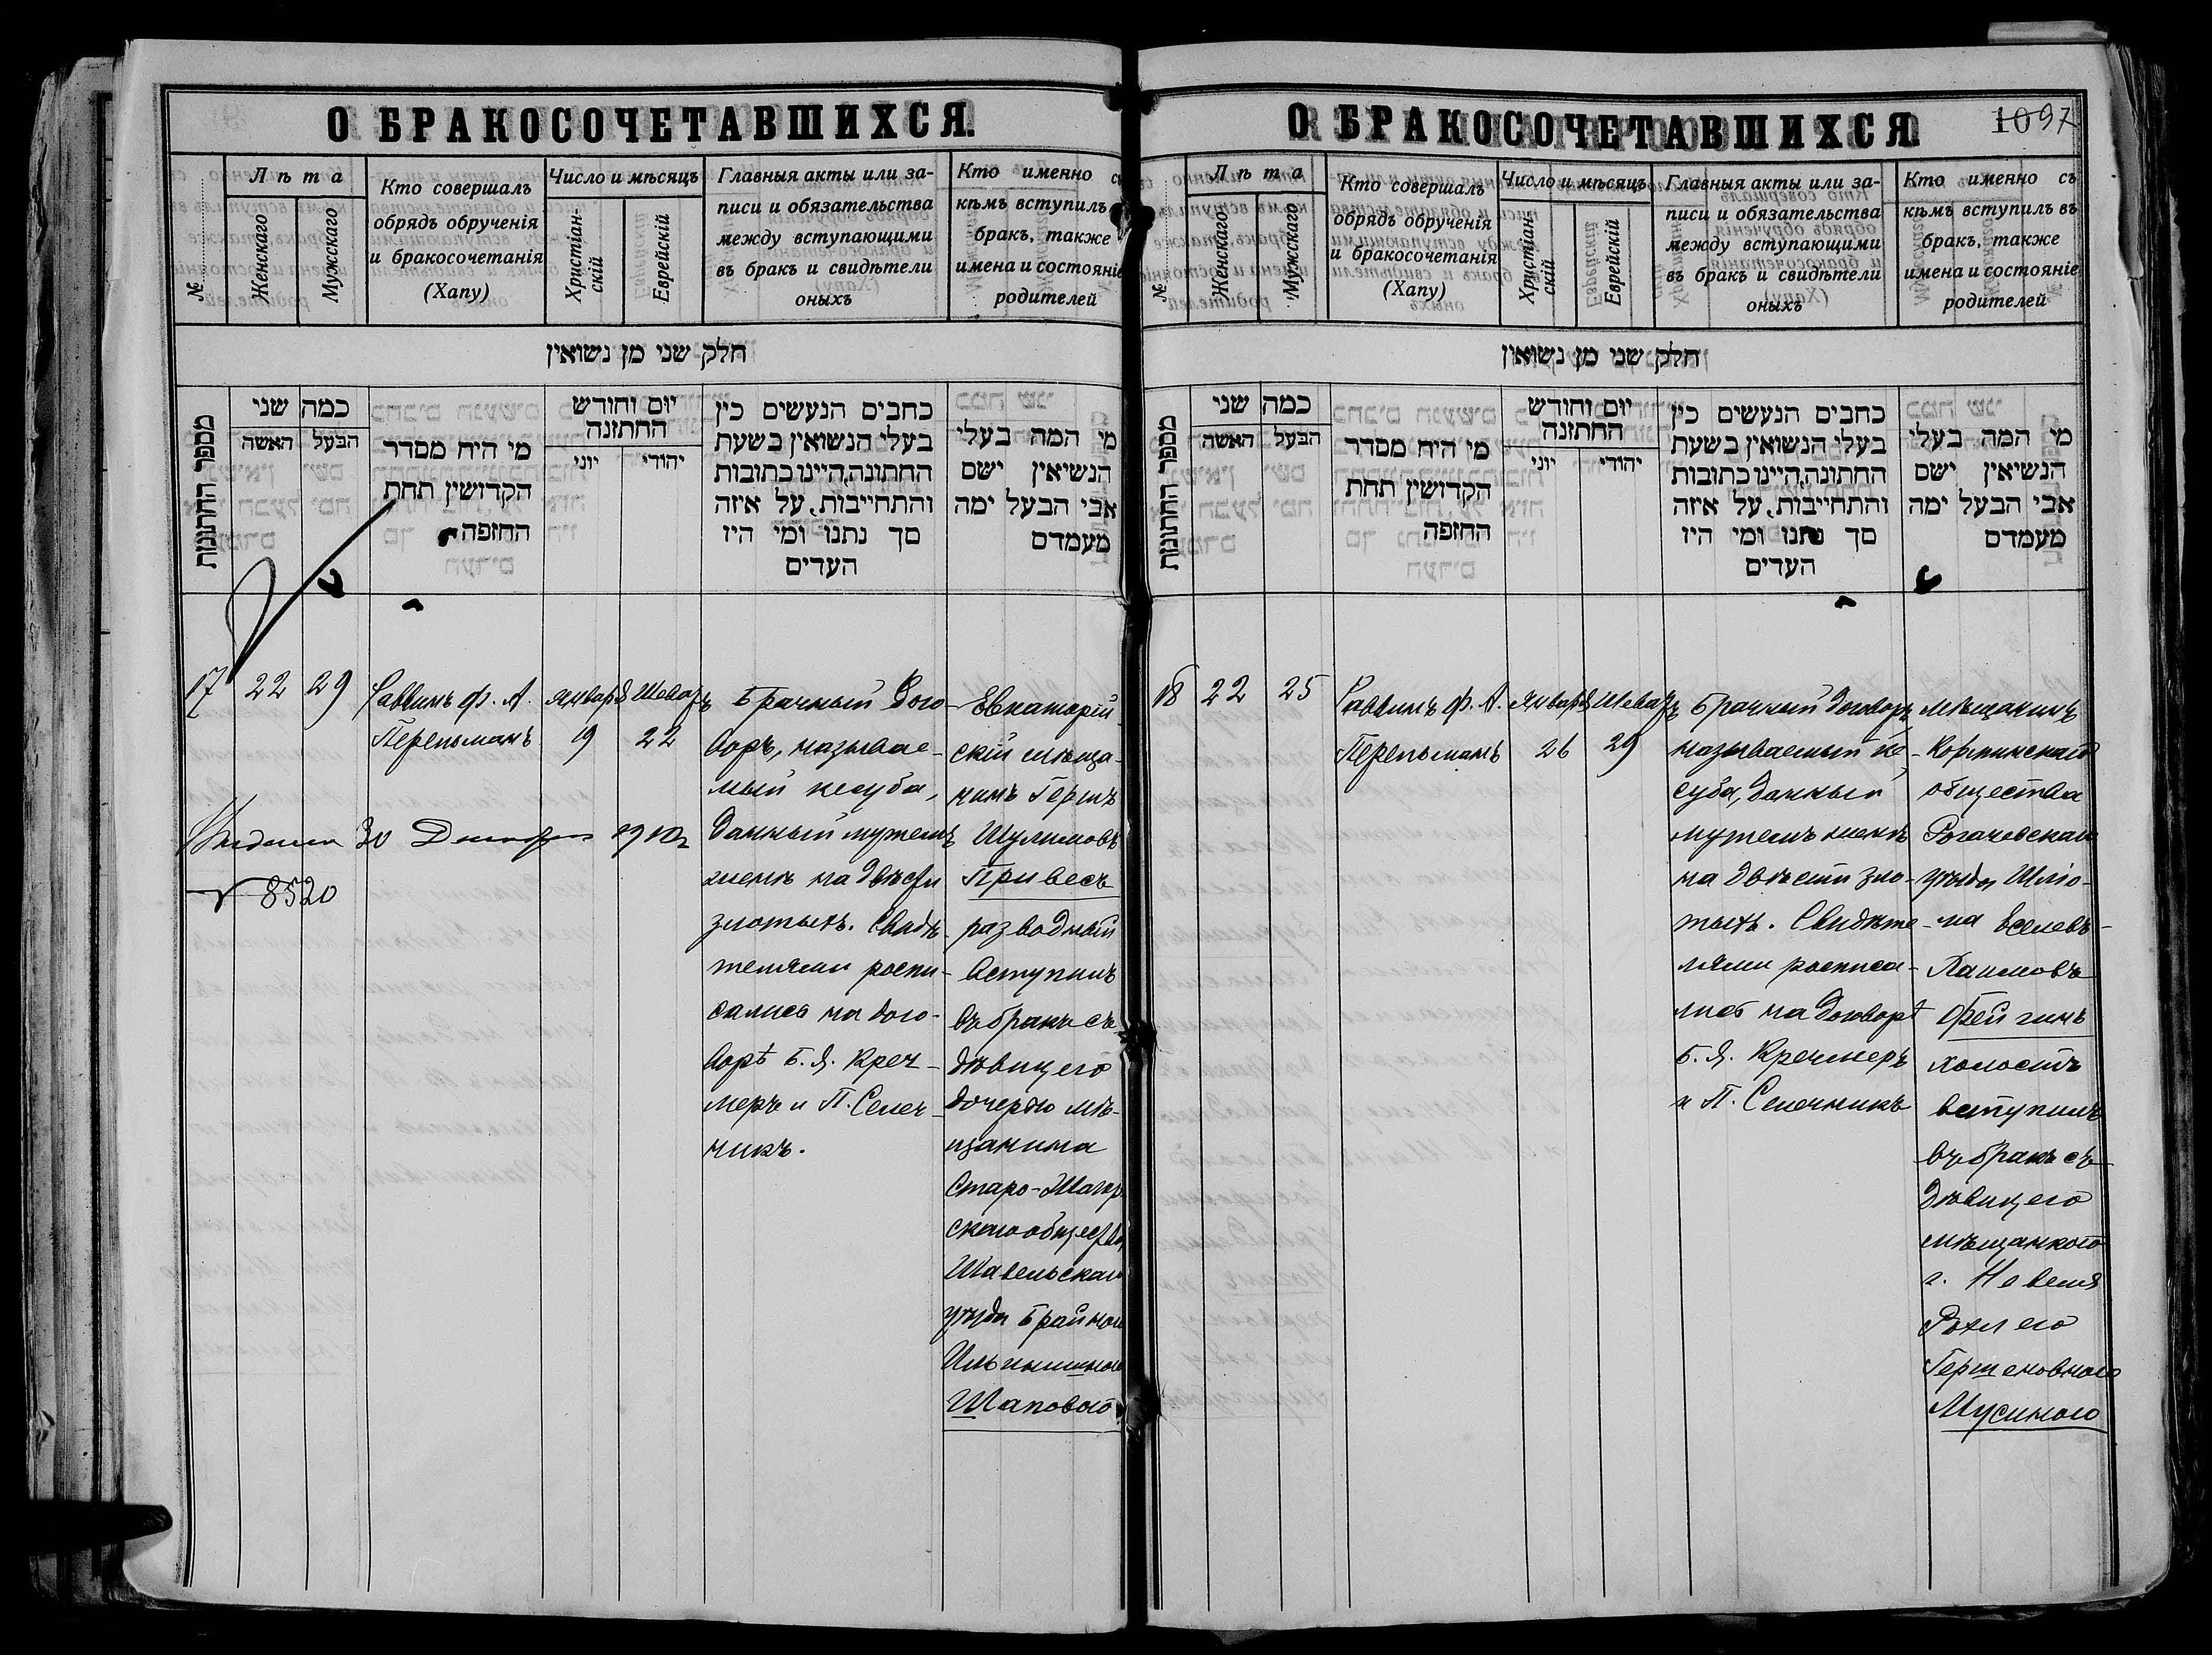 О БРАКОСОЧЕТАВШИХСЯ.
№
Лѣта
Женскаго
Мужскаго
Кто совершалъ
обрядъ обрученія
и бракосочетанія
(Хапу)
Число и мѣсяцъ
Христіан-
скій
Еврейскій
Главныя акты или за-
писи и обязательства
между вступающими
въ бракъ и свидѣтели
оныхъ
Кто именно
кѣмъ вступилъ
бракъ, также
имена и состояніе
родителей
חלק שני מן נשואין
מספר החתונות
כמה שני
האשה
הבעל
מי היח מסדר
הקדושין תחת
החופה
יום וחודש
החתונה
יוני
יהודי
כתבים הנעשים כין
בעלי הנשואין בשעת
החתונה,היינו כתובות
והתחייבות, על איזה
סך נתנו ומי היו
העדים
מי המה בעלי
הנשיאין ישם
אבי הבעל ימה
מעמדם
17
22
29
Раввинъ Ф. А.
Перельманъ
Январь
19
Шеватъ
22
Брачный дого-
воръ, называе-
мый кесуба,
данный мужемъ
женѣ на двѣсти
злотыхъ. Свидѣ-
телями распи-
сались на дого-
ворѣ Б. Я. Креч-
меръ и П. Селеч-
никъ.
Евпаторій-
скій мѣща-
нинъ Гершъ
Шулимовъ
Привесъ
разводный
вступилъ
въ бракъ съ
дѣвицею
дочерью мѣ-
щанина
Старо-Жагор
скаго общества
Шавельскаго
уѣзда Брайною
Ильинишною
Шаповою
30
8520
О БРАКОСОЧЕТАВШИХСЯ.
10
97
№
Лѣта
Женскаго
Мужскаго
Кто совершалъ
обрядъ обрученія
и бракосочетанія
(Хапу)
Число и мѣсяцъ
Христіан-
скій
Еврейскій
Главныя акты или за-
писи и обязательства
между вступающими
въ бракъ и свидѣтели
оныхъ
Кто именно съ
кѣмъ вступилъ въ
бракъ, также
имена и состояніе
родителей
חלק שני מן נשואין
מספר החתונות
כמה שני
האשה
הבעל
מי היח מסדר
הקדושין תחת
החופה
יום וחודש
החתונה
יוני
יהודי
כתבים הנעשים כין
בעלי הנשואין בשעת
החתונה,היינו כתובות
והתחייבות, על איזה
סך נתנו ומי היו
העדים
מי המה בעלי
הנשיאין ישם
אבי הבעל ימה
מעמדם
18
22
25
Раввинъ Ф. А.
Перельманъ
Январь
26
Шеватъ
29
Брачный договоръ
называемый ке-
суба, данный
мужемъ женѣ
на двѣсти зло-
тыхъ. Свидѣте-
лями расписа-
лись на договорѣ
Б. Я. Кречмеръ
и П. Селечникъ
Мѣщанинъ
Кормянскаго
общества
Рогачевскаго
уѣзда Шліо-
ма
Фейгинъ
холостъ
вступилъ
въ бракъ съ
дѣвицею
мѣщанкою
г. Невеля
Рохлею
Гершеновною
Мусиною